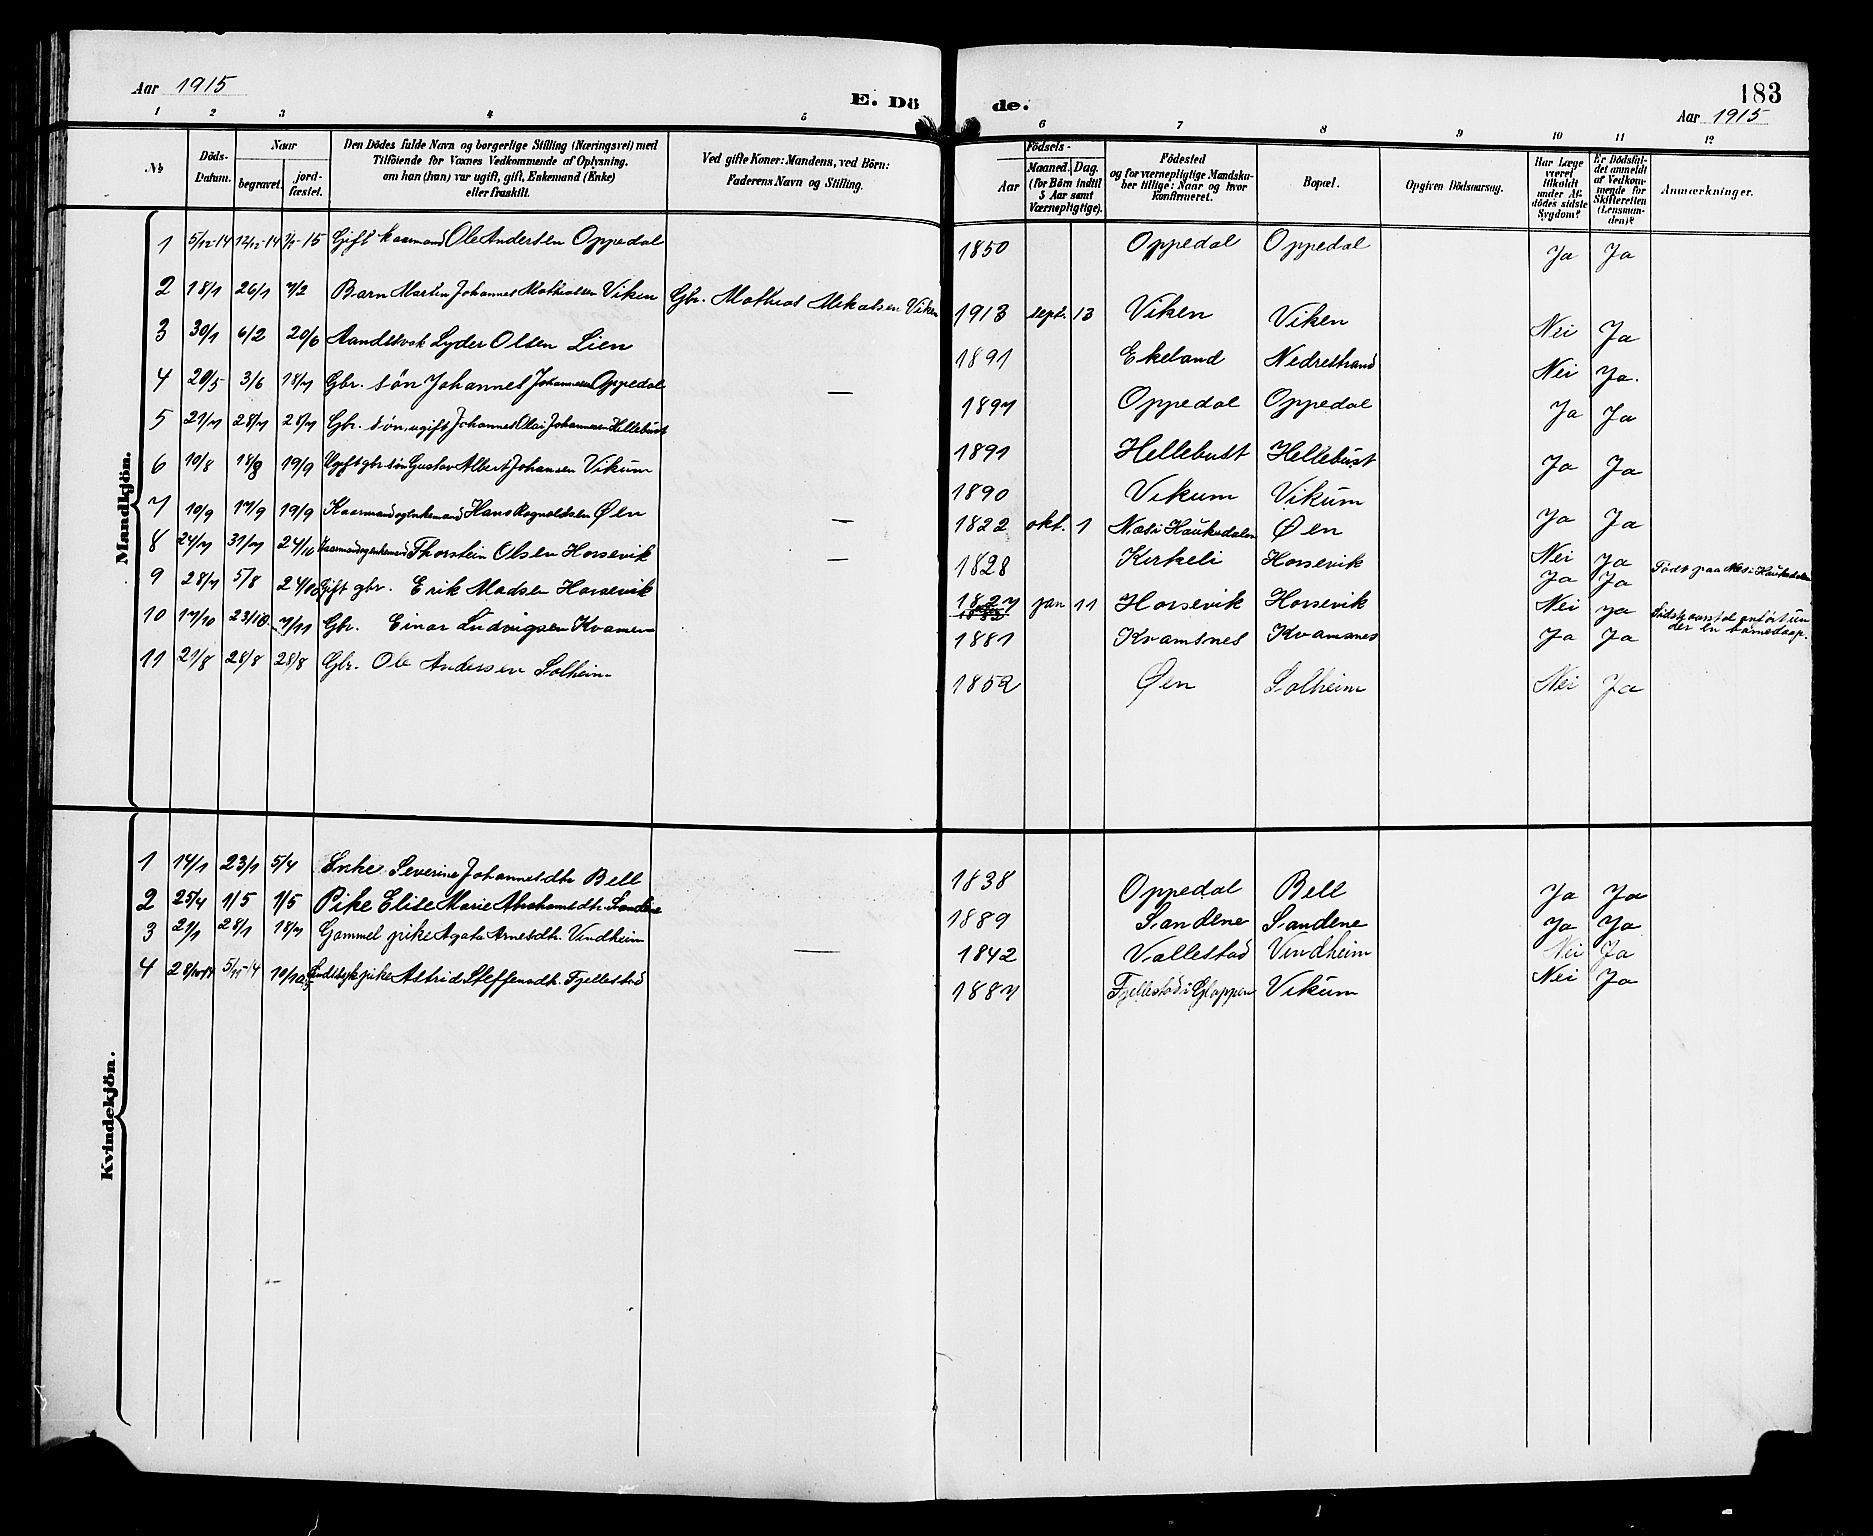 Aar 1915
E. Dö de.
183
Aar 1915
1 2 3 4 5 6 7 8 9 10 11 12
No.
Döds-Datum.
Naar
begravet.
jord-fæstet.
Den Dödes fulde Navn og borgerlige Stilling (Næringsvei) med
Tilföiende for Voxnes Vedkommende af Oplysning,
om han (hun) var ugift, gift, Enkemand (Enke)
eller fraskilt.
Ved gifte Koner: Mandens, ved Börn:
Faderens Navn og Stilling.
Födsels-
Aar
Maaned. Dag.
(for Börn indtil
5 Aar samt
Værnepligtige).
Födested
og for værnepligtige Mandska-
ber tillige: Naar og hvor
konfirmeret.
Bopæl.
Opgiven Dödsaarsag.
Har Læge
været
tilkaldt
under Af-
dödes sidste
Sygdom?
Er Dödsfal-
det anmeldt
af Vedkom-
mende for
Skifteretten
(Lensman-
den)?
Anmærkninger.
Mandkjön.
1 5/12-14 12/12-14 1/1-15 Gift kaarmand Ole Andersen Oppedal 1850 Oppedal Oppedal Ja Ja
2 18/1 26/1 7/2 Barn Martin Johannes Mathiassen Viken Gbr. Mathias Mikalsen Viken 1913 sept. 13 Viken Viken Nei Ja
3 30/1 6/2 20/6 Aandssvak Lyder Olsen Lien 1891 Ekeland Nedrestrand Nei Ja.
4 20/5 3/6 18/7 Gbr. søn Johannes Johannesen Oppedal — 1897 Oppedal Oppedal Ja Ja
5 21/7 28/7 28/7 Gbr. søn, ugift Johannes Olai Johannesen Hellebust 1891 Hellebust Hellebust Ja Ja
6 10/8 18/8 19/9 Ugift gbr. søn Gustav Albert Johansen Vikum 1890 Vikum Vikum Ja Ja
7 10/9 17/9 19/9 Kaarmand og enkemand Hans Ragnvaldsen Øen — 1822 okt. 1 Næs i Haukedalen Øen Nei Ja Født paa Næs i Haukedalen
8 24/7 31/7 24/10 Kaarmand og enkemand Thorstein Olsen Horsevik — 1828 Kirkeli Horsevik Ja Ja
9 28/7 5/8 24/10 Gift gbr. Erik Madsen Horsevik 1827 jan 11 Horsevik Horsevik Nei Ja
10 17/10 23/10 7/11 Gbr. Einar Ludvigsen Kvamsn. 1881 Kvamsnes Kvamsnes Ja Ja
11 21/8 28/8 28/8 Gbr. Ole Andersen Solheim 1852 Øen Solheim Nei Ja
Kvindekjön.
1 14/1 23/1 5/4 Enke Severine Johannesdtr Bell 1838 Oppedal Bell Ja Ja
2 25/4 1/5 1/5 Pike Elise Marie Abrahamsdtr. Sandene 1889 Sandene Sandene Ja Ja
3 21/1 28/1 18/7 Gammel pike Agata Arnesdtr. Vindheim — 1842 Vallestad Vindheim Nei Ja
4 5/11-14 Sindssyk pike Astrid Steffensdtr. Fjellestad 1887 Fjellestad i Gloppen Vikum Nei Ja